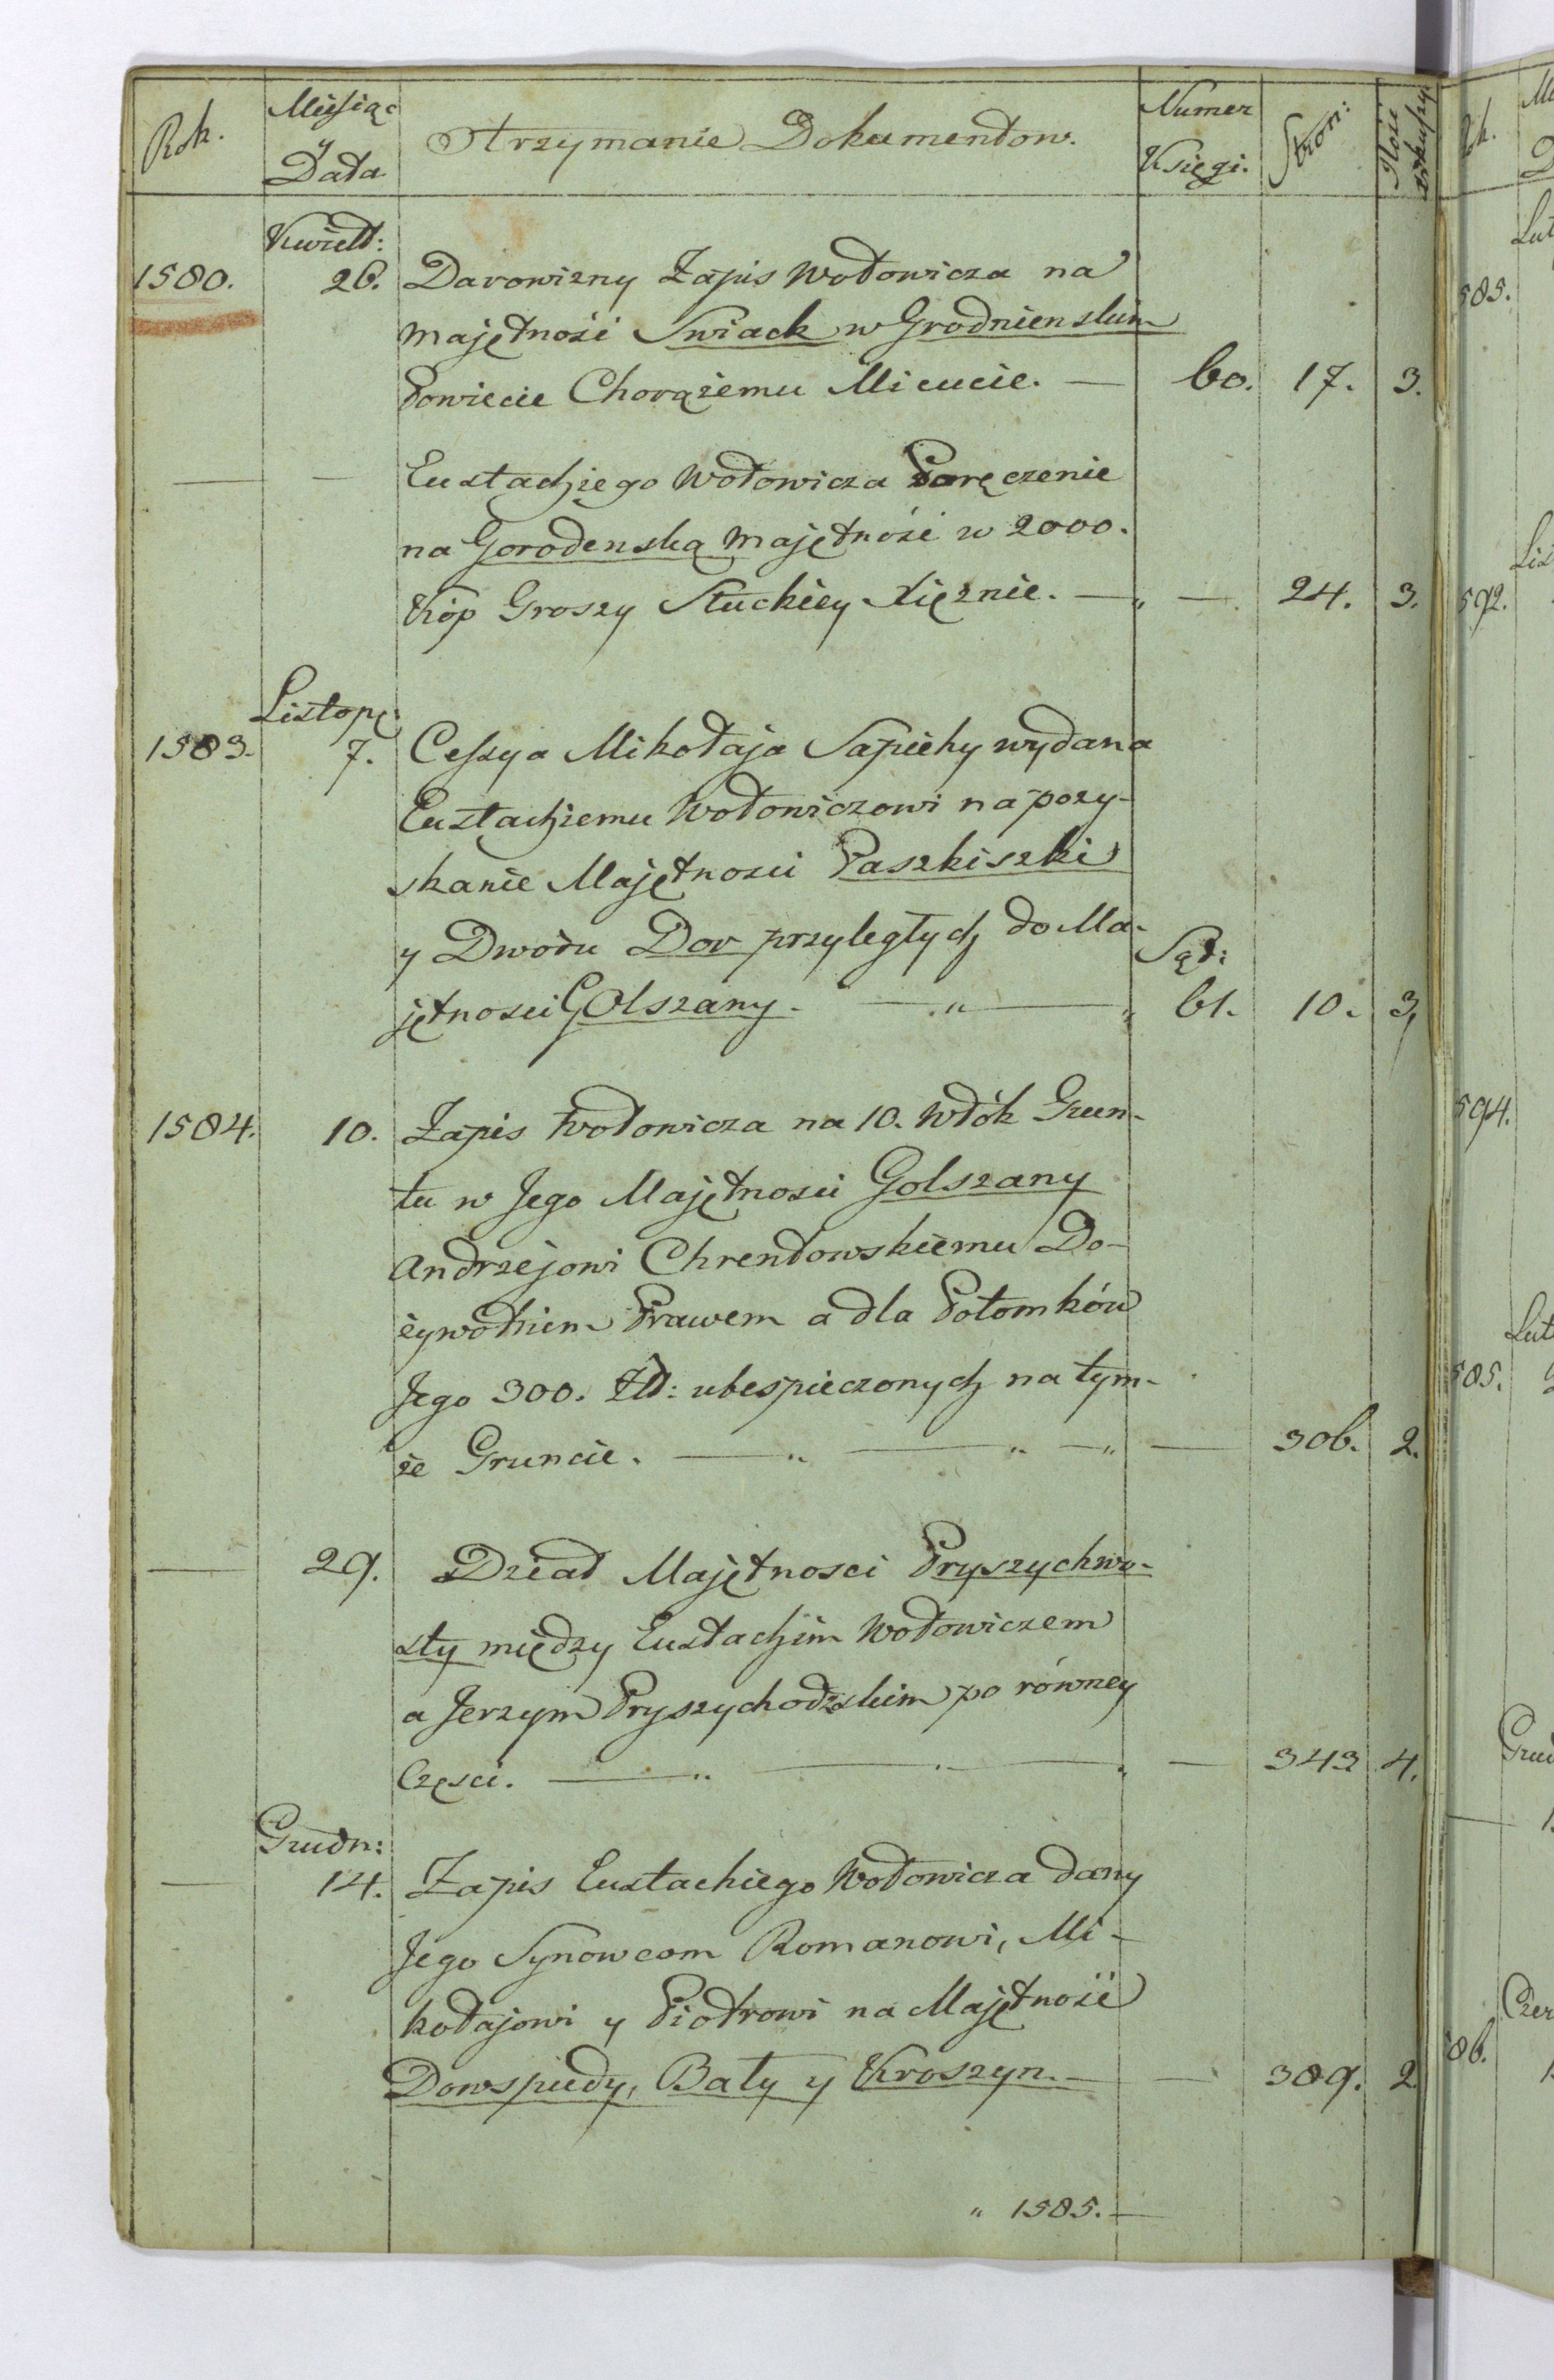 Rok. Miesiąc y Data Otrzymanie Dokumentow. Numer Księgi. Stron: Ilość arkuszy.
Kwiet:
1580. 26. Darowizny Zapis Wołowicza na
majętność Swiack w Grodnienskim
Powiecie Chorążemu Micucie. — 60. 17. 3.
— — Eustachiego Wołowicza Poręczenie
na Gorodenską majętność w 2000.
Kóp Groszy Słuckiey Xiężnie. — „ — 24. 3.
Listop:
1583. 7. Cessya Mikołaja Sapiehy wydana
Eustachiemu Wołowiczowi na pozy-
skanie Majętnosci Paszkiszki
y Dworu Dor przyległych do Ma-
Sąd:
jętnosci Golszany. — „ — „ 61. 10. 3,
1584. 10. Zapis Wołowicza na 10. Włók Grun-
tu w Jego Majętnosci Golszany
Andrzejowi Chrentowskiemu Do-
żywotniem Prawem a dla Potomków
Jego 300. Zł: ubespieczonych na tym-
że Gruncie. — „ — „ — „ — 306. 2.
— 29. Dział Majętnosci Pryszychwo-
sty między Eustachim Wołowiczem
a Jerzym Pryszychodzskim po równey
Częsci. — „ — „ — „ — 343 4.
Grudn:
— 14. Zapis Eustachiego Wołowicza dany
Jego Synowcom Romanowi, Mi-
kołajowi y Piotrowi na Majętność
Dowspiedy, Baty y Kroszyn. — — 389. 2
„ 1585. —